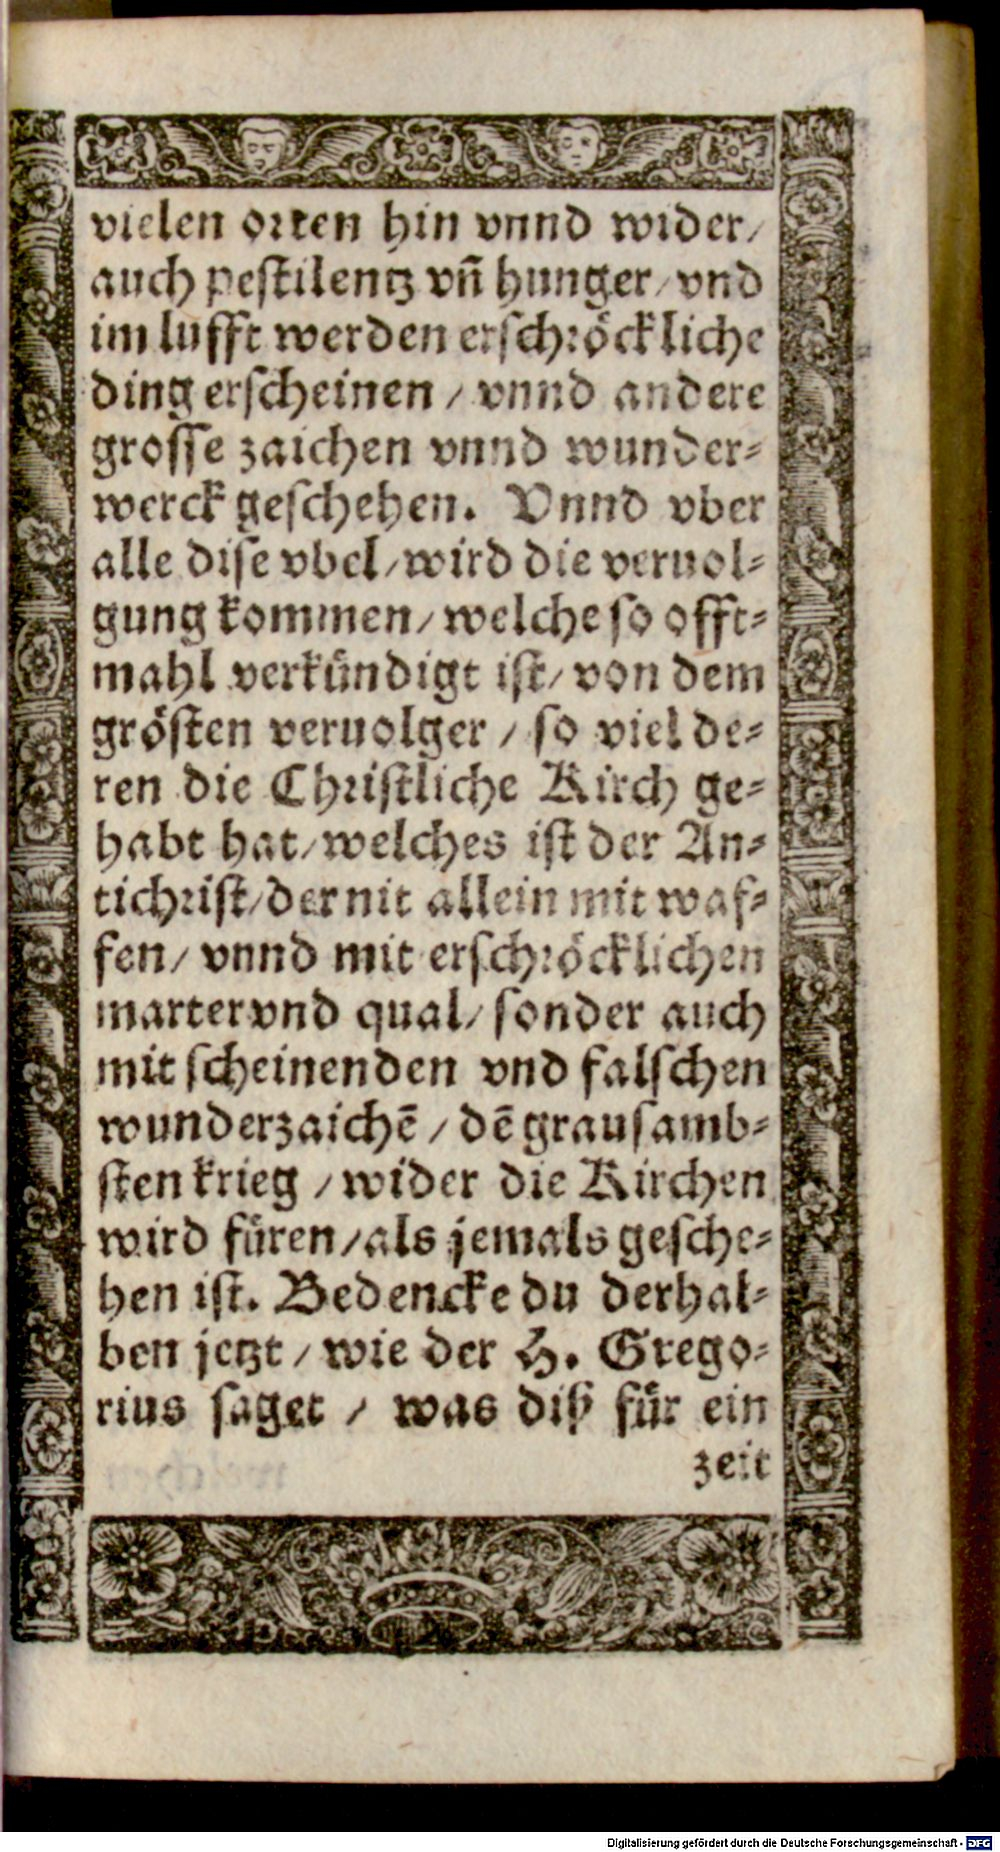 vielen orten hin vnnd wider/
auch pestilentz vñ hunger/ vnd
im lufft werden erschröckliche
ding erscheinen / vnnd andere
grosse zaichen vnnd wunder-
werck geschehen. Vnnd vber
alle dise vbel/ wird die veruol-
gung kommen/ welche so offt-
mahl verkündigt ist/ von dem
grösten veruolger / so viel de-
ren die Christliche Kirch ge-
habt hat/ welches ist der An-
tichrist/ der nit allein mit waf-
fen/ vnnd mit erschröcklichen
marter vnd qual/ sonder auch
mit scheinenden vnd falschen
wunderzaichē / dē grausamb-
sten krieg / wider die Kirchen
wird füren/ als jemals gesche-
hen ist. Bedencke du derhal-
ben jetzt / wie der H. Grego-
rius saget / was diß für ein
zeit
Digitalisierung gefördert durch die Deutsche Forschungsgemeinschaft - DFG